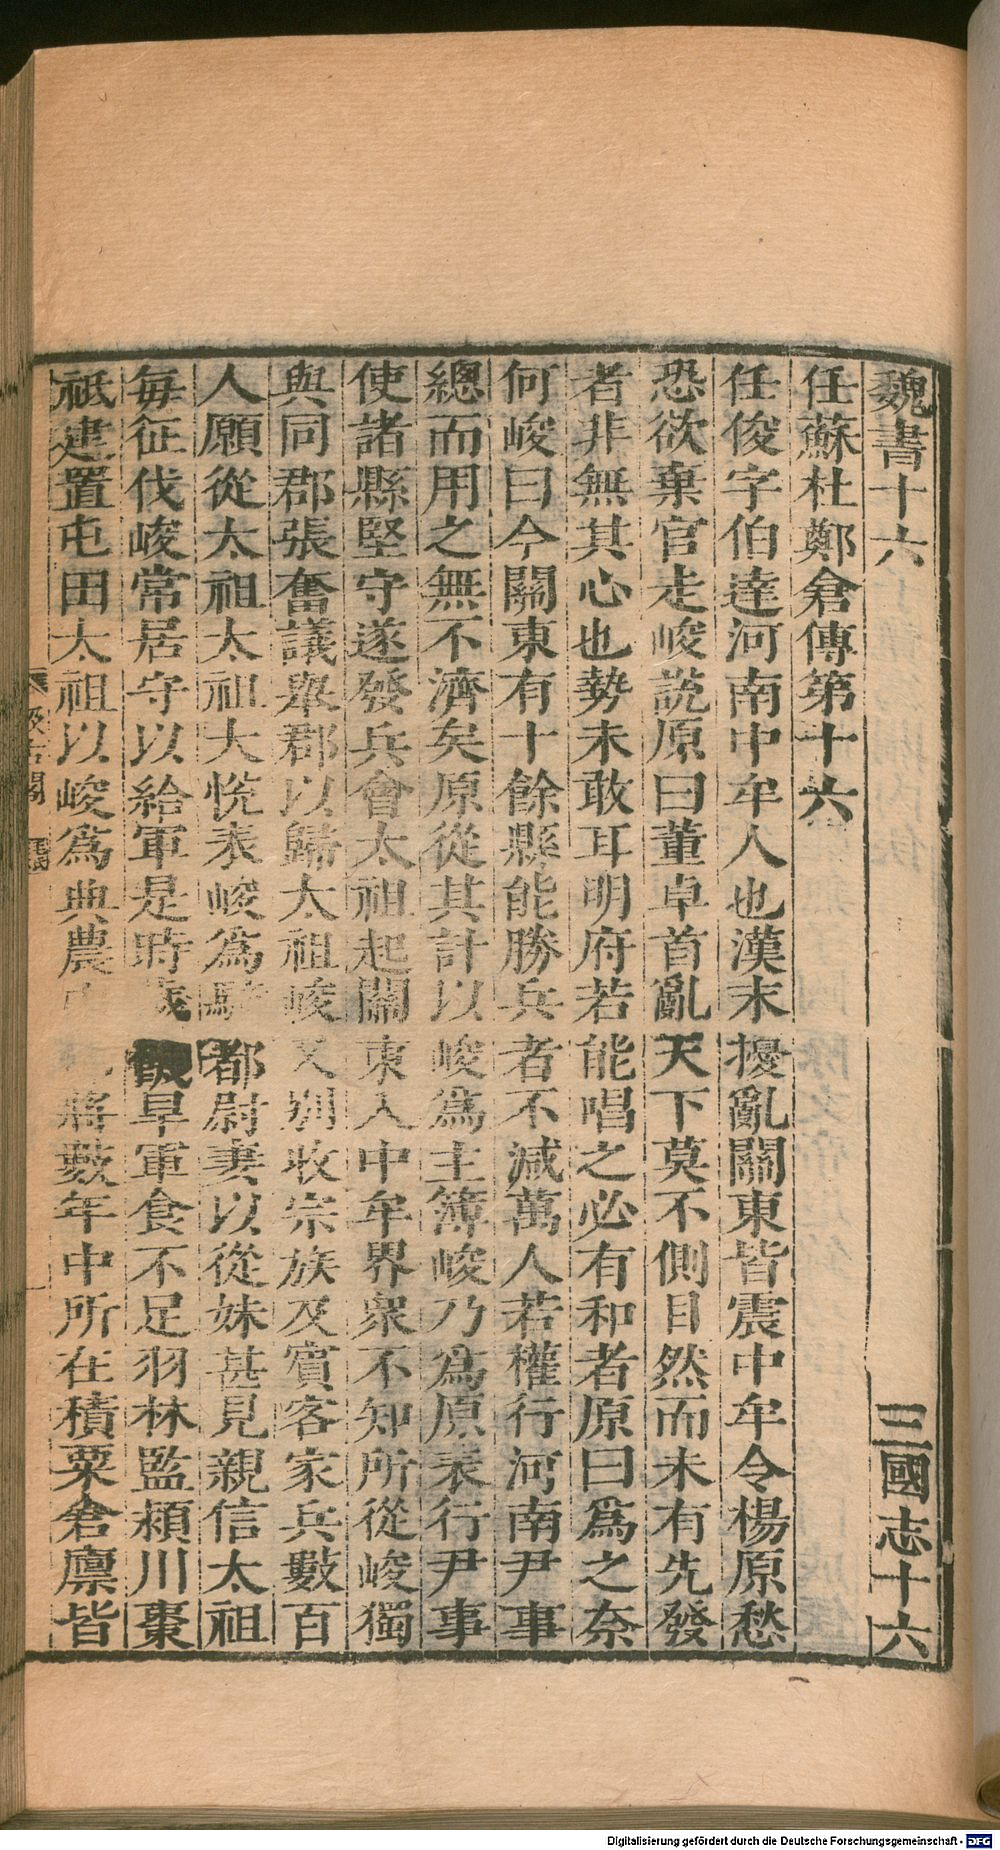 魏書十六 三國志十六
任蘇杜鄭倉傳第十六
任俊字伯達河南中牟人也漢末擾亂關東皆震中牟令楊原愁
恐欲棄官走峻說原曰董卓首亂天下莫不側目然而未有先發
者非無其心也勢未敢耳明府若能唱之必有和者原曰爲之奈
何峻曰今關東有十餘縣能勝兵者不減萬人若權行河南尹事
總而用之無不濟矣原從其計以峻爲主簿峻乃爲原表行尹事
使諸縣堅守遂發兵會太祖起關東入中牟界衆不知所從峻獨
與同郡張奮議舉郡以歸太祖峻又別收宗族及賓客家兵數百
人願從太祖太祖大悅表峻爲騎都尉妻以從妹甚見親信太祖
每征伐峻常居守以給軍是時歲飢旱軍食不足羽林監潁川棗
祗建置屯田太祖以峻爲典農中將數年中所在積粟倉廩皆
汲古閣
毛氏
Digitalisierung gefördert durch die Deutsche Forschungsgemeinschaft - DFG